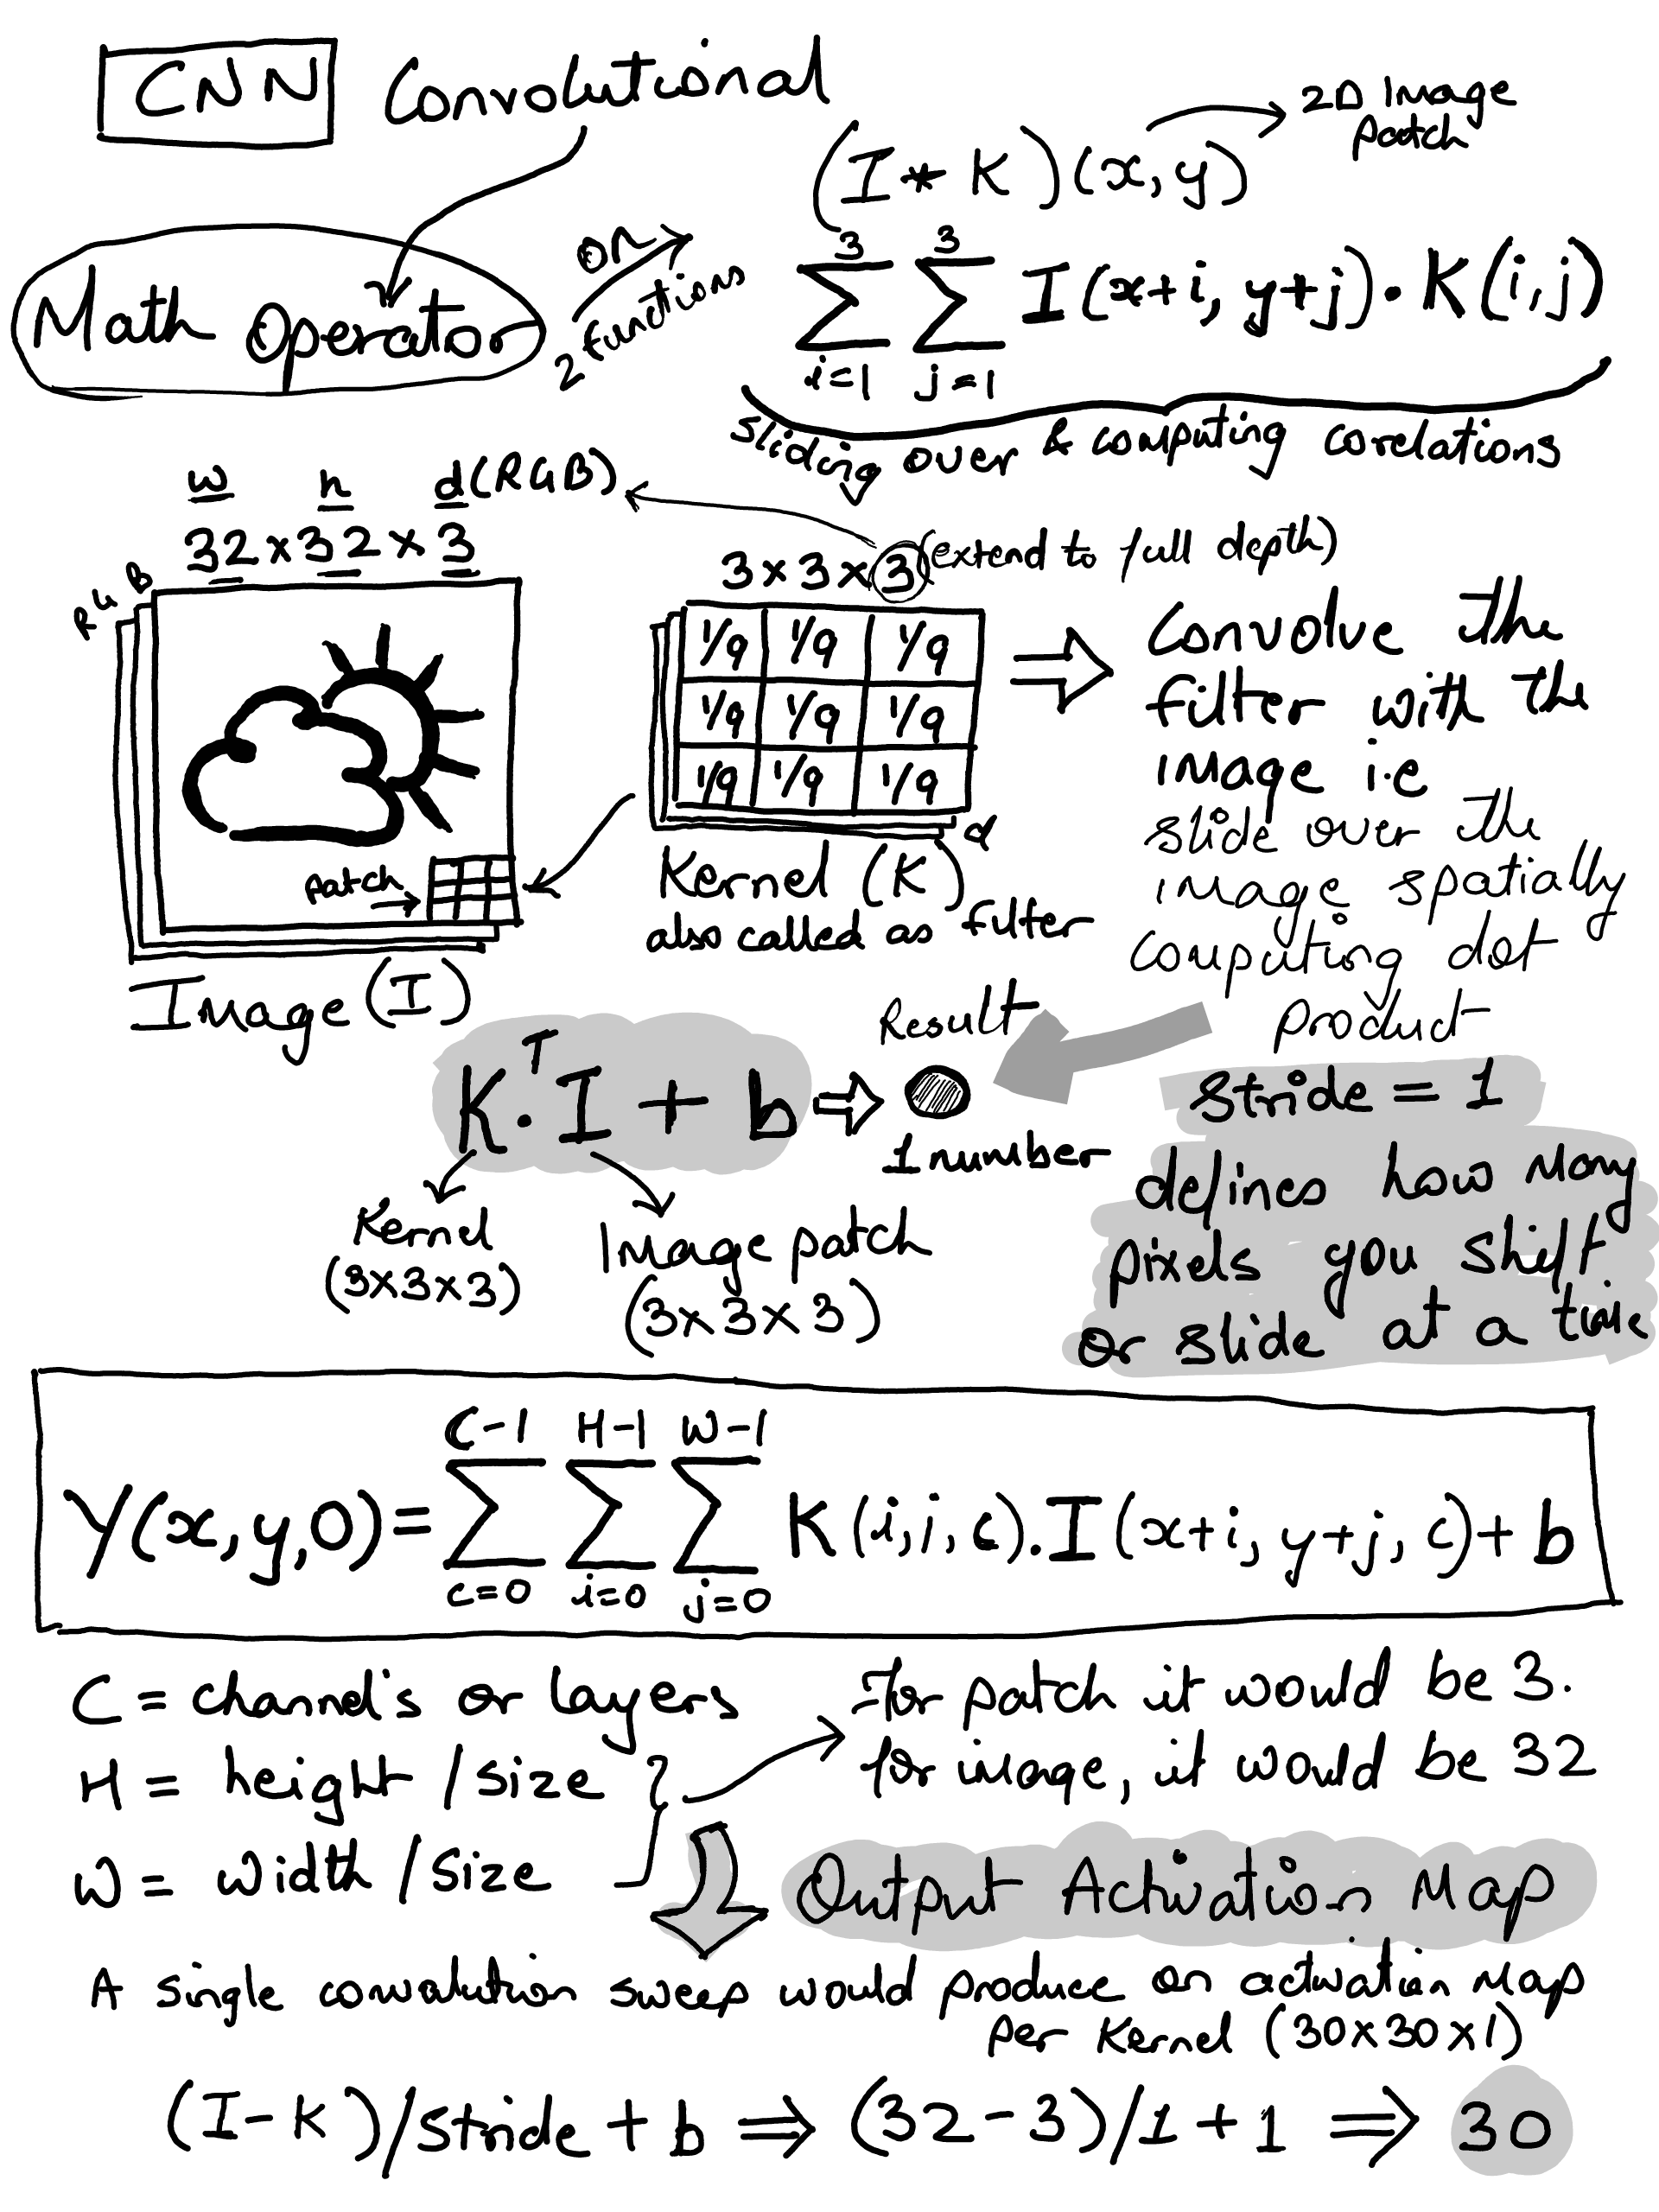 CNN Convolutional
2D Image
patch
(I * K)(x,y)
Math Operator
on
2 functions
3 3
∑ ∑ I(x+i, y+j) · K(i,j)
i=1 j=1
sliding over & computing corelations
w h d(RGB)
32 x 32 x 3
R G B
3 x 3 x 3 (extend to full depth)
1/9 1/9 1/9
1/9 1/9 1/9
1/9 1/9 1/9
d
patch
Image (I)
Kernel (K)
also called as filter
Convolve the
filter with the
image i.e
slide over the
image spatially
computing dot
product
K^T · I + b ⇒
Result
1 number
Kernel
(3x3x3)
Image patch
(3x3x3)
Stride = 1
defines how many
pixels you shift
or slide at a time
C-1 H-1 W-1
Y(x,y,0) = ∑ ∑ ∑ K(i,j,c).I(x+i, y+j, c) + b
c=0 i=0 j=0
C = channel's or layers
H = height / size
W = width / size
For patch it would be 3.
for image, it would be 32
Output Activation Map
A single convolution sweep would produce an activation map
per Kernel (30x30x1)
(I-K)/stride + b ⇒ (32-3)/1+1 ⇒ 30